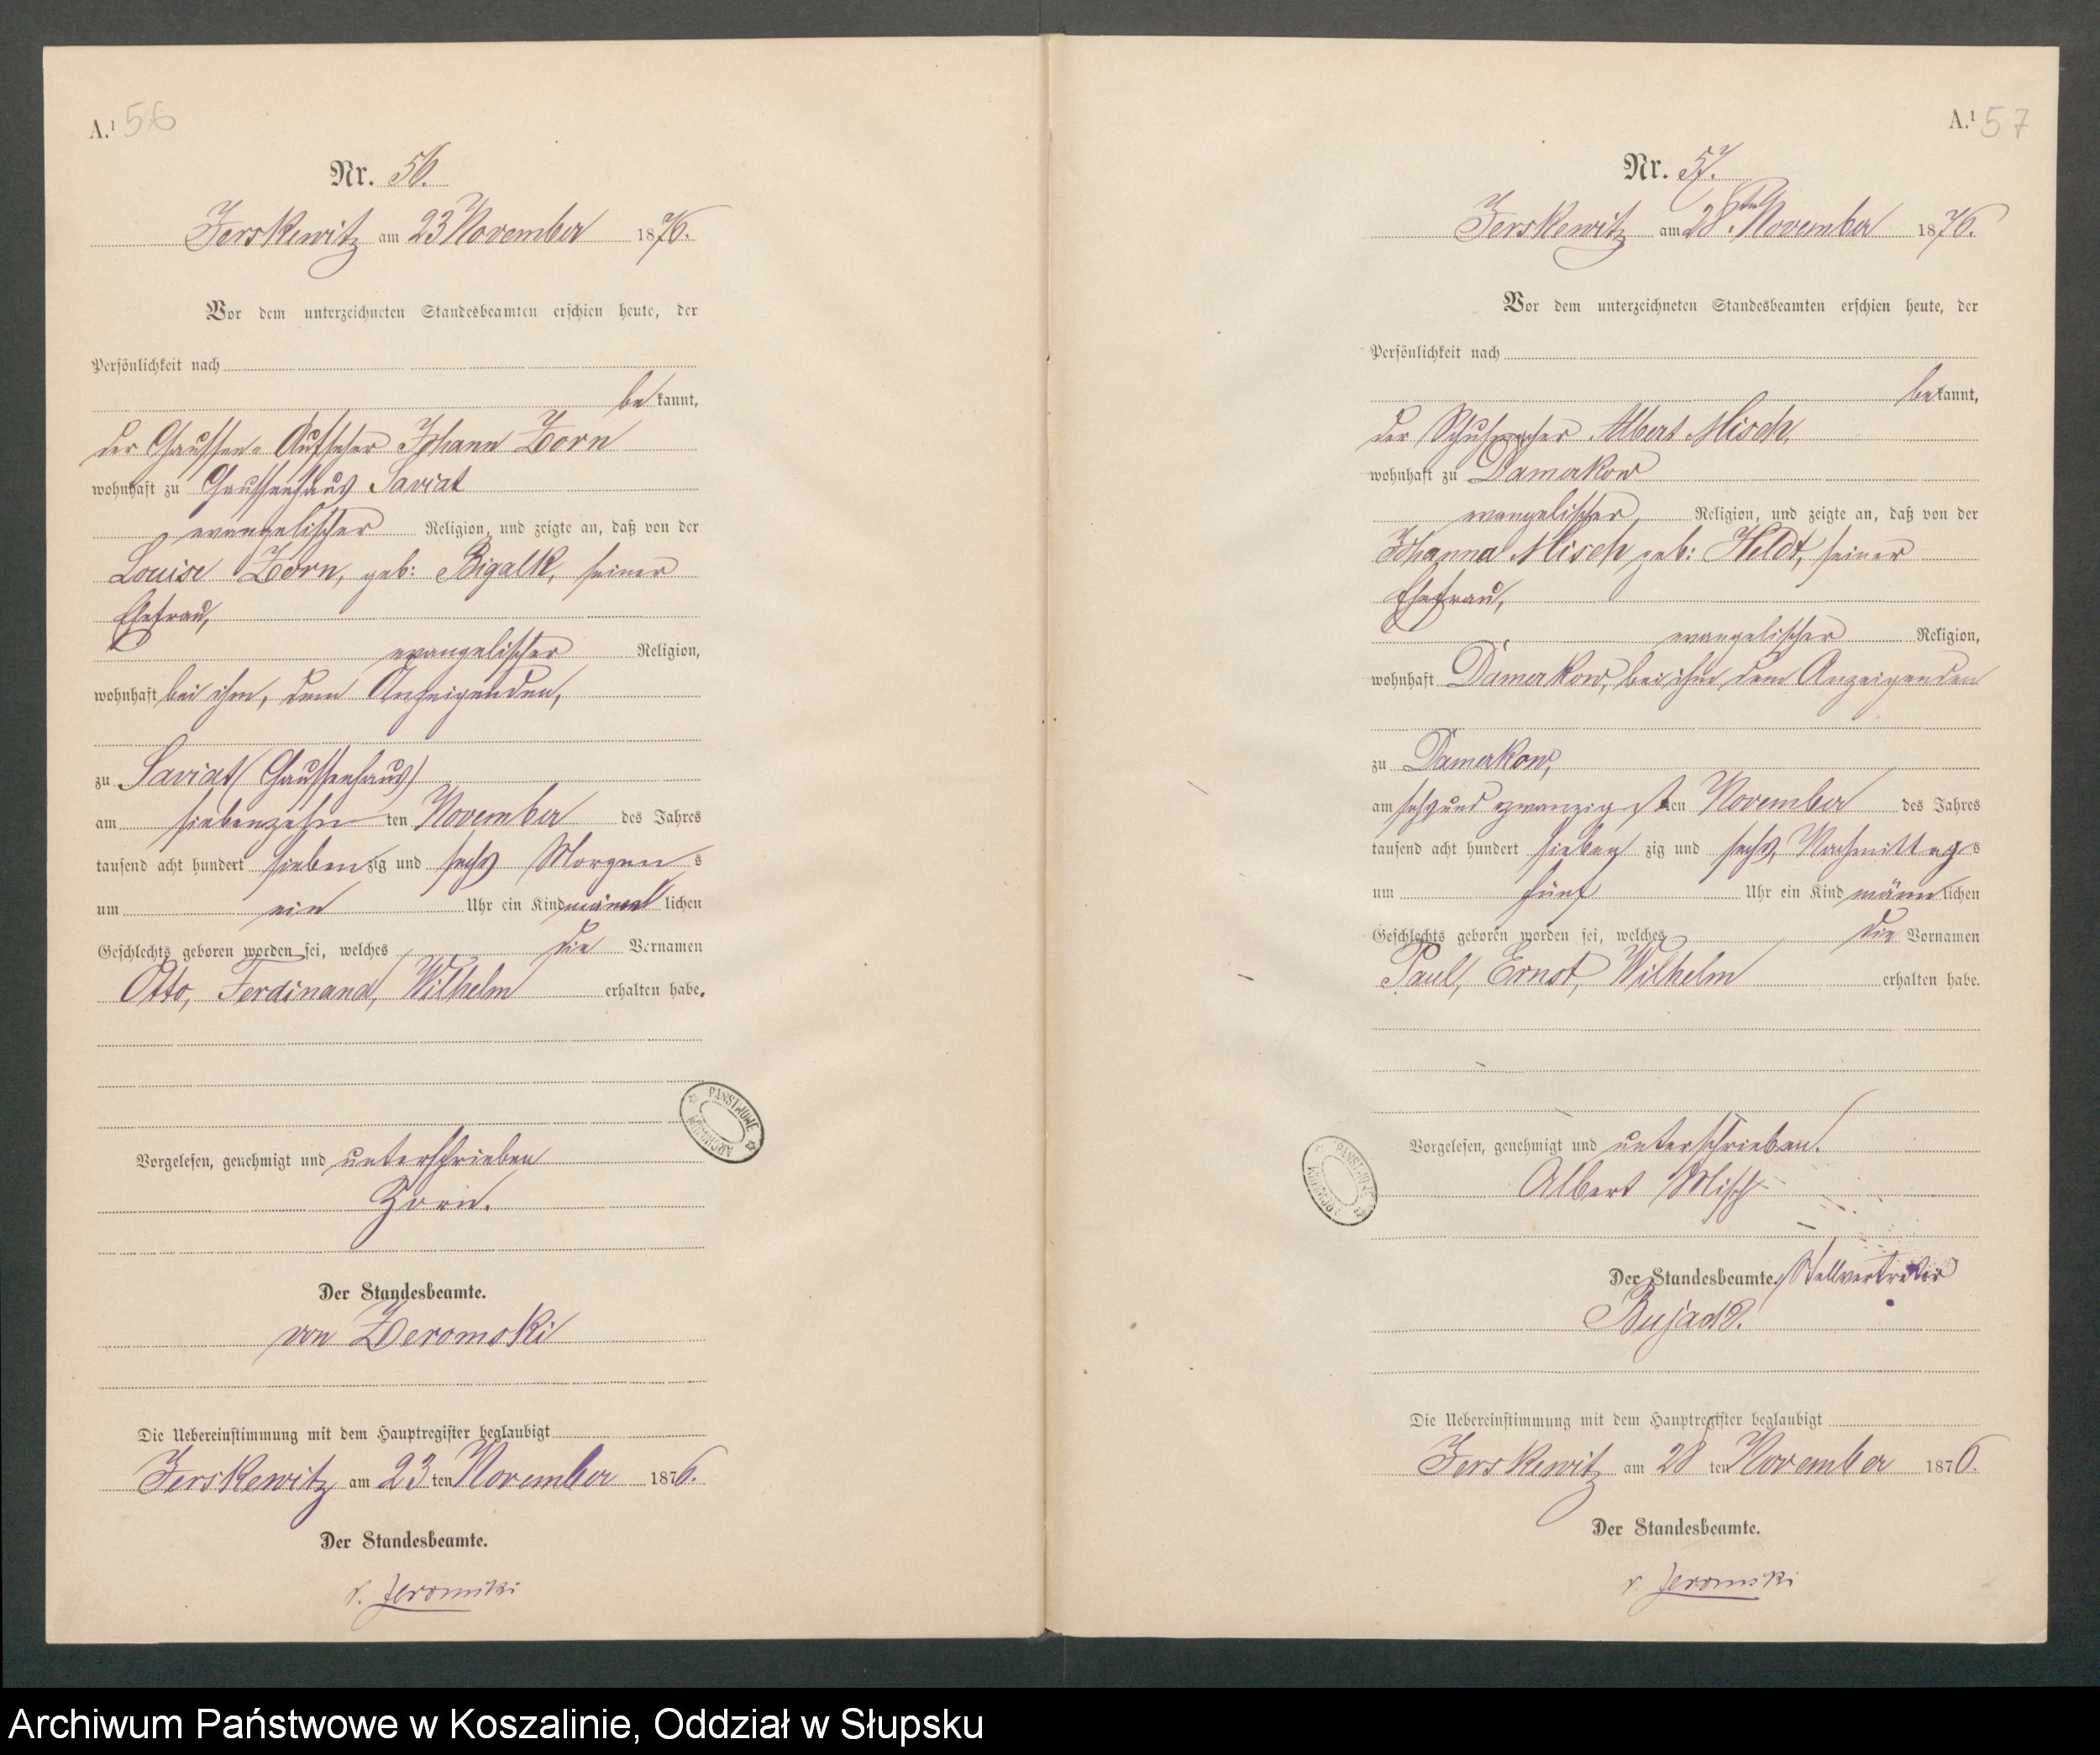 A.¹ 56
Nr. 56.
Jerskewitz am 23 November 1876.
Vor dem unterzeichneten Standesbeamten erschien heute, der
Persönlichkeit nach
bekannt,
der Chaussee-Aufseher Johann Zorn
wohnhaft zu Chausseehaus Saviat
evangelischer Religion, und zeigte an, daß von der
Louise Zorn, geb: Bigalk, seiner
Ehefrau,
evangelischer Religion,
wohnhaft bei ihm, dem Anzeigenden,
zu Saviat (Chausseehaus)
am siebenzehnten November des Jahres
tausend acht hundert siebenzig und sechs Morgens
um ein Uhr ein Kind männlichen
Geschlechts geboren worden sei, welches die Vornamen
Otto, Ferdinand, Wilhelm erhalten habe.
Vorgelesen, genehmigt und unterschrieben
Zorn.
Der Standesbeamte.
von Zeromski
Die Uebereinstimmung mit dem Hauptregister beglaubigt
Jerskewitz am 23ten November 1876.
Der Standesbeamte.
v. Zeromski
PAŃSTWOWE ARCHIWUM
A.¹ 57
Nr. 57.
Jerskewitz am 28ten November 1876.
Vor dem unterzeichneten Standesbeamten erschien heute, der
Persönlichkeit nach
bekannt,
der Schuhmacher Albert Misch,
wohnhaft zu Damerkow
evangelischer Religion, und zeigte an, daß von der
Johanna Misch geb: Heldt, seiner
Ehefrau,
evangelischer Religion,
wohnhaft Damerkow, bei ihm, dem Anzeigenden
zu Damerkow,
am sechsundzwanzigsten November des Jahres
tausend acht hundert siebenzig und sechs, Nachmittags
um fünf Uhr ein Kind männlichen
Geschlechts geboren worden sei, welches die Vornamen
Paul, Ernst, Wilhelm erhalten habe.
Vorgelesen, genehmigt und unterschrieben.
Albert Misch
Der Standesbeamte. Stellvertreter
Die Uebereinstimmung mit dem Hauptregister beglaubigt
Jerskewitz am 28ten November 1876.
Der Standesbeamte.
v. Zeromski
PAŃSTWOWE ARCHIWUM
Archiwum Państwowe w Koszalinie, Oddział w Słupsku